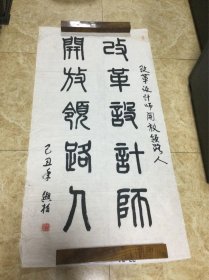 改革設計師
開放領路人
改革设计师開放領路人
己丑年